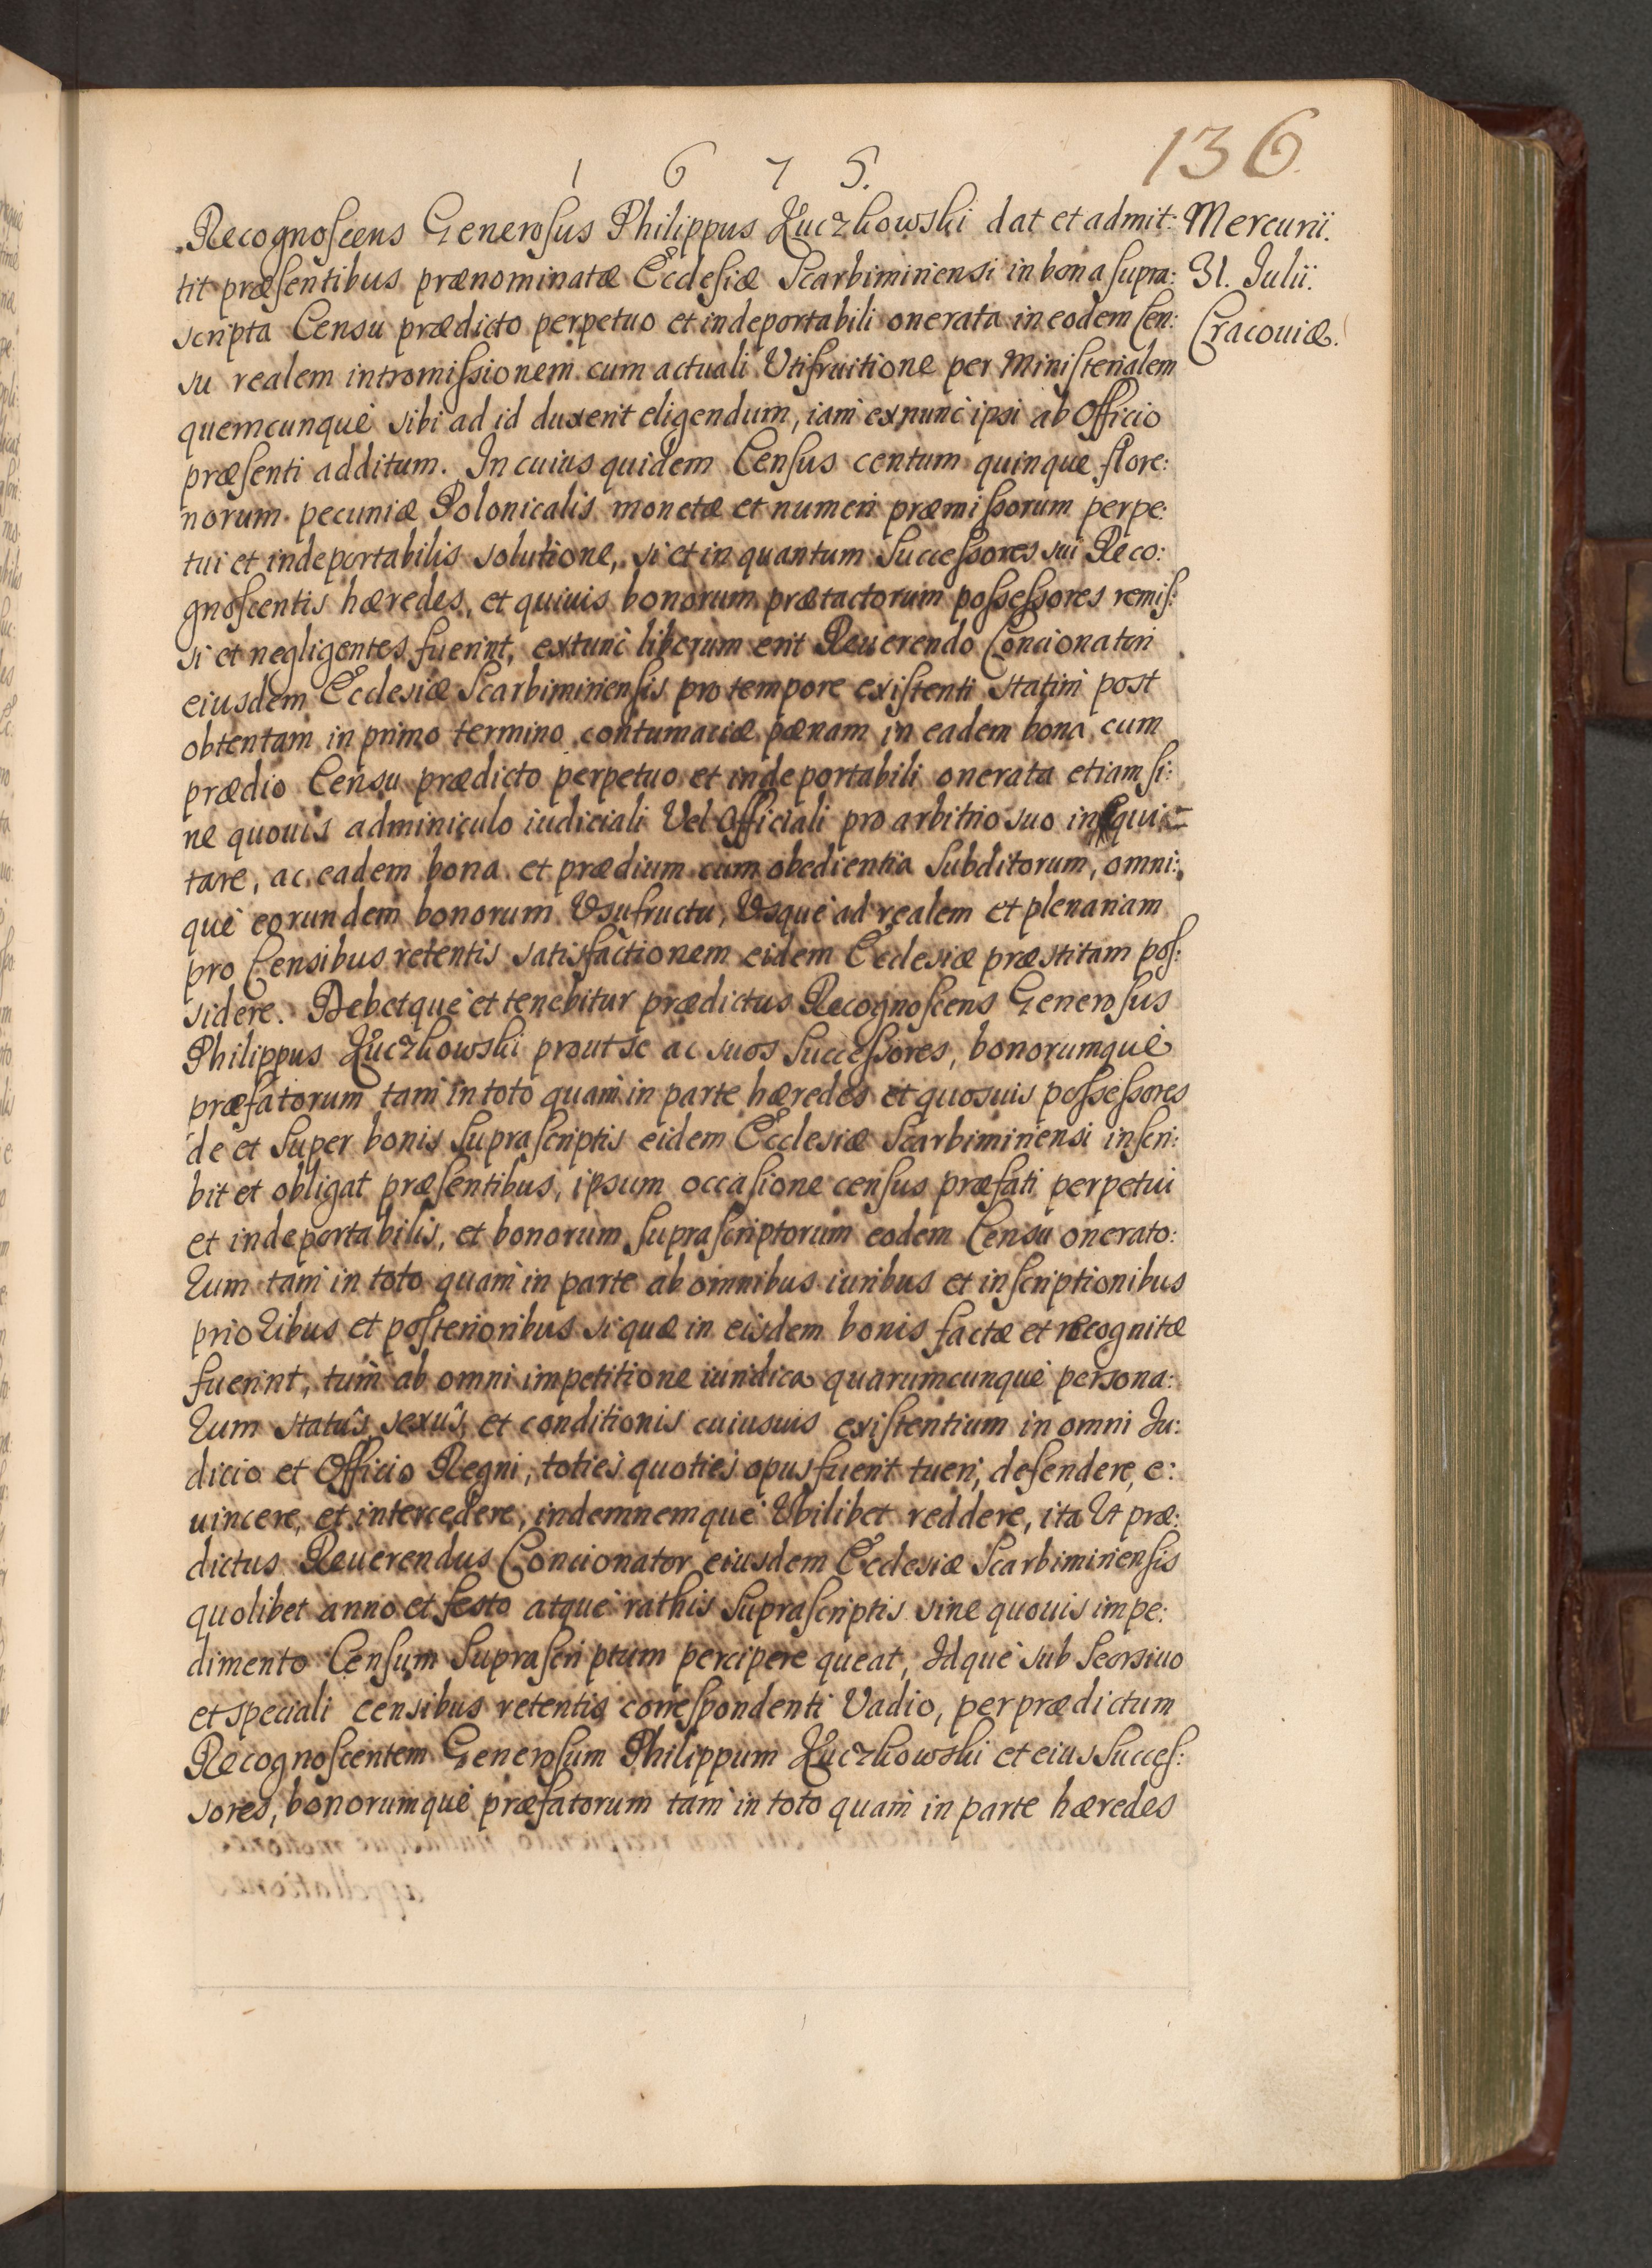 136.
1 6 7 5.
Mercurii.
31. Julii.
Cracouiæ.
Recognoscens Generosus Philippus Łuczkowski dat et admit:
tit præsentibus prænominatæ Ecclesiæ Scarbimiriensi in bona supra:
scripta Censu prædicto perpetuo et indeportabili onerata in eodem Cen:
su realem intromissionem cum actuali Utifruitione per Ministerialem
quemcunquè sibi ad id duxerit eligendum, iam ex nunc ipsi ab Officio
præsenti additum. In cuius quidem Census centum quinque flore:
norum pecuniæ Polonicalis monetæ et numeri præmissorum perpe:
tui et indeportabilis solutione, si et in quantum Successores sui Reco:
gnoscentis hæredes, et quiuis bonorum prætactorum possessores remis:
si et negligentes fuerint, extunc liberum erit Reuerendo Concionatori
eiusdem Ecclesiæ Scarbimiriensis pro tempore existenti statim post
obtentam in primo termino contumaciæ pænam in eadem bona cum
prædio Censu prædicto perpetuo et indeportabili onerata etiam si:
ne quouis adminiculo iudiciali Vel Officiali pro arbitrio suo inequi=
tare, ac eadem bona et prædium cum obedientia Subditorum, omni:
què eorundem bonorum Usufructu, Usquè ad realem et plenariam
pro Censibus retentis satisfactionem eidem Ecclesiæ præstitam pos:
sidere. Debetquè et tenebitur prædictus Recognoscens Generosus
Philippus Łuczkowski prout se ac suos Successores, bonorumquè
præfatorum tam in toto quam in parte hæredes et quosuis possessores
de et Super bonis Suprascriptis eidem Ecclesiæ Scarbimiriensi inscri:
bit et obligat præsentibus, ipsum occasione census præfati perpetui
et indeportabilis, et bonorum Suprascriptorum eodem Censu onerato:
rum tam in toto quam in parte ab omnibus iuribus et inscriptionibus
prioribus et posterioribus si quæ in eisdem bonis factæ et recognitæ
fuerint, tum ab omni impetitione iuridica quarumcunquè persona:
rum statûs, sexûs, et conditionis cuiusuis existentium in omni Ju:
dicio et Officio Regni, toties quoties opus fuerit tueri, defendere, e:
uincere, et intercedere, indemnemquè Ubilibet reddere, ita Ut præ:
dictus Reuerendus Concionator eiusdem Ecclesiæ Scarbimiriensis
quolibet anno et festo atquè rathis Suprascriptis sine quouis impe:
dimento Censum Suprascriptum percipere queat, Idquè sub Seorsiuo
et speciali censibus retentis correspondenti Vadio, per prædictum
Recognoscentem Generosum Philippum Łuczkowski et eius Succes:
sores, bonorumquè præfatorum tam in toto quam in parte hæredes